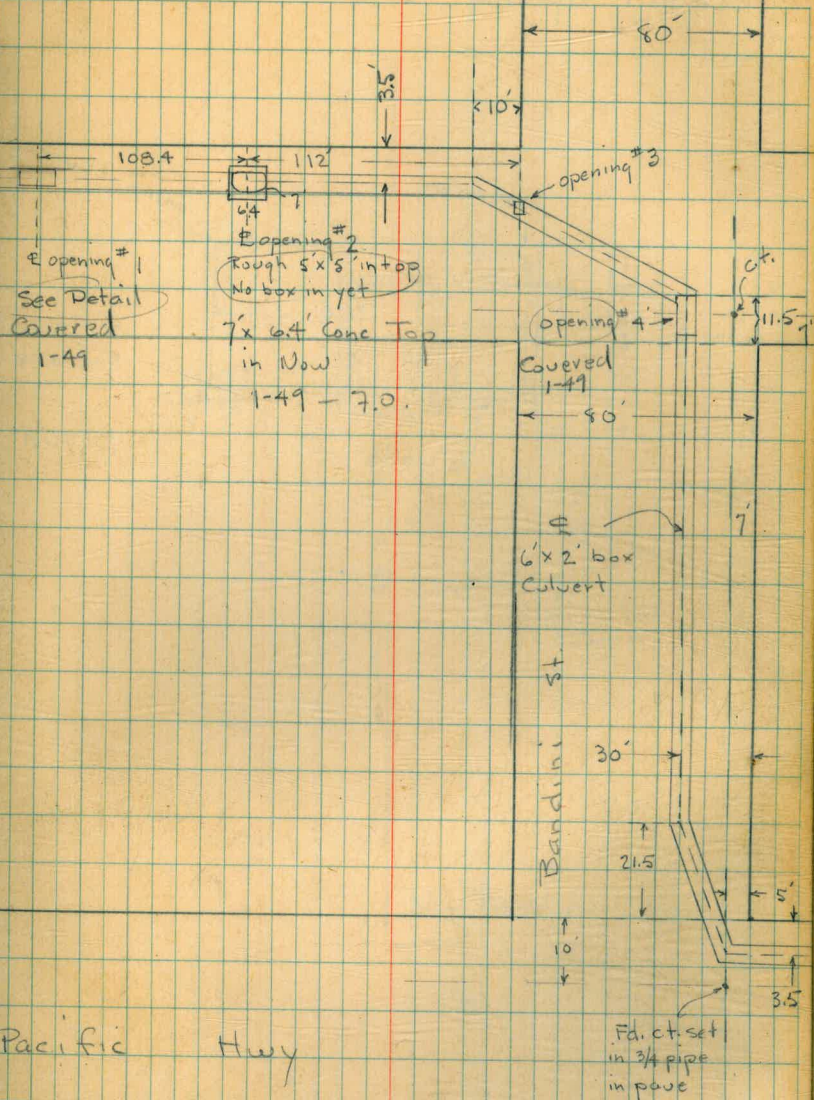 80'
3.5'
10'
108.4
112'
opening #3
7
6.4
℄ opening #1
See Detail
Covered
1-49
℄ opening #2
Rough 5'x 5' in top
No box in yet
7'x 6.4' Conc Top
in Now
1-49 - 7.0.
c.t.
opening #4
11.5
7'
Covered
1-49
80'
℄
6'x 2' box
Culvert
7'
Bandini St.
30'
21.5
5'
10'
3.5
Pacific Hwy
Fd. ct. set
in 3/4 pipe
in pave